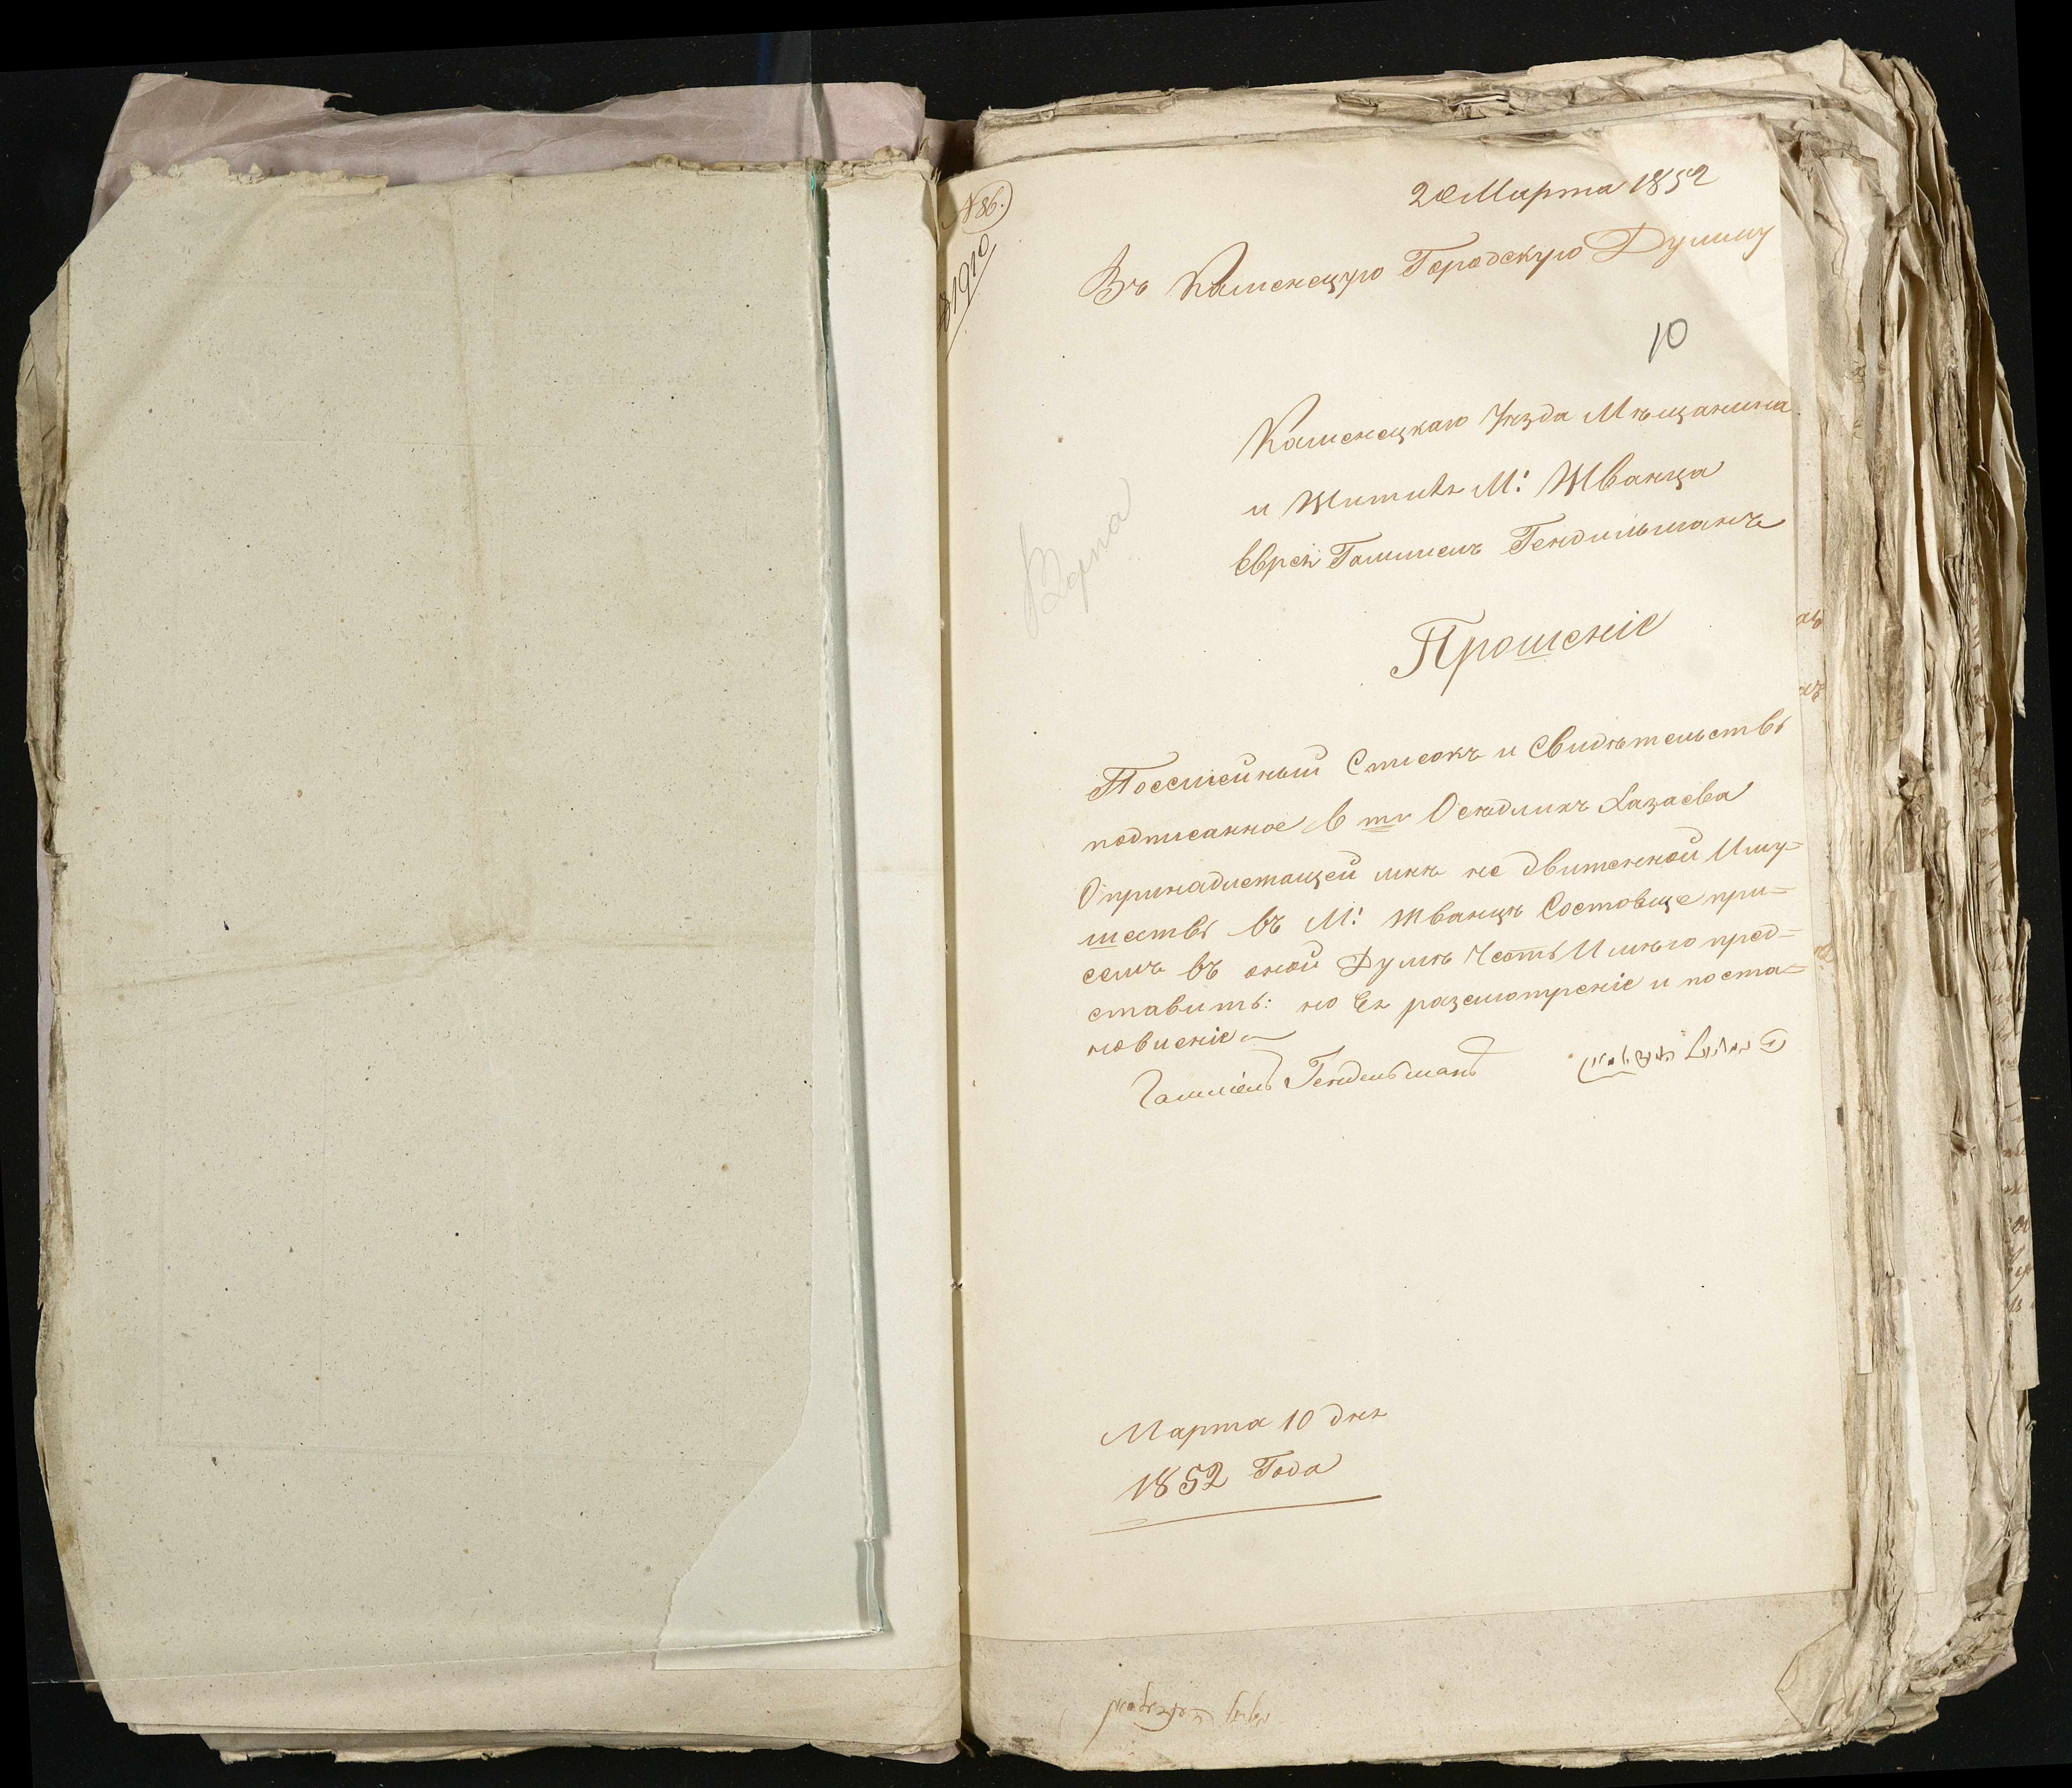 № 86.
20 Марта 1852
Въ Каменецую Городскую Думму
10
Каменецкаго Уезда Мѣщанина
и Жителя М: Жванца
Еврея Гамшель Гендильманъ
Прошеніе
Посемейный Списокъ и Свидѣтельства
подписанное
Опринадлежащей мнѣ не движенной Иму=
шества въ М: Жванцѣ Состовще при=
семъ въ оной Думѣ Честь Имѣю пред=
ставить: на Ея разсмотреніе и поста=
новленіе
Гендельманъ
Марта 10 дня
1852 Года